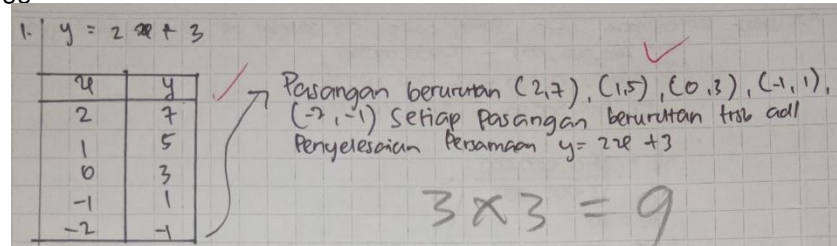 1. y = 2x + 3
x y
2 7
1 5
0 3
-1 1
-2 -1
Pasangan berurutan (2,7), (1,5), (0,3), (-1,1),
(-2,-1) Setiap pasangan berurutan trsb adl
Penyelesaian Persamaan y = 2x + 3
3 x 3 = 9